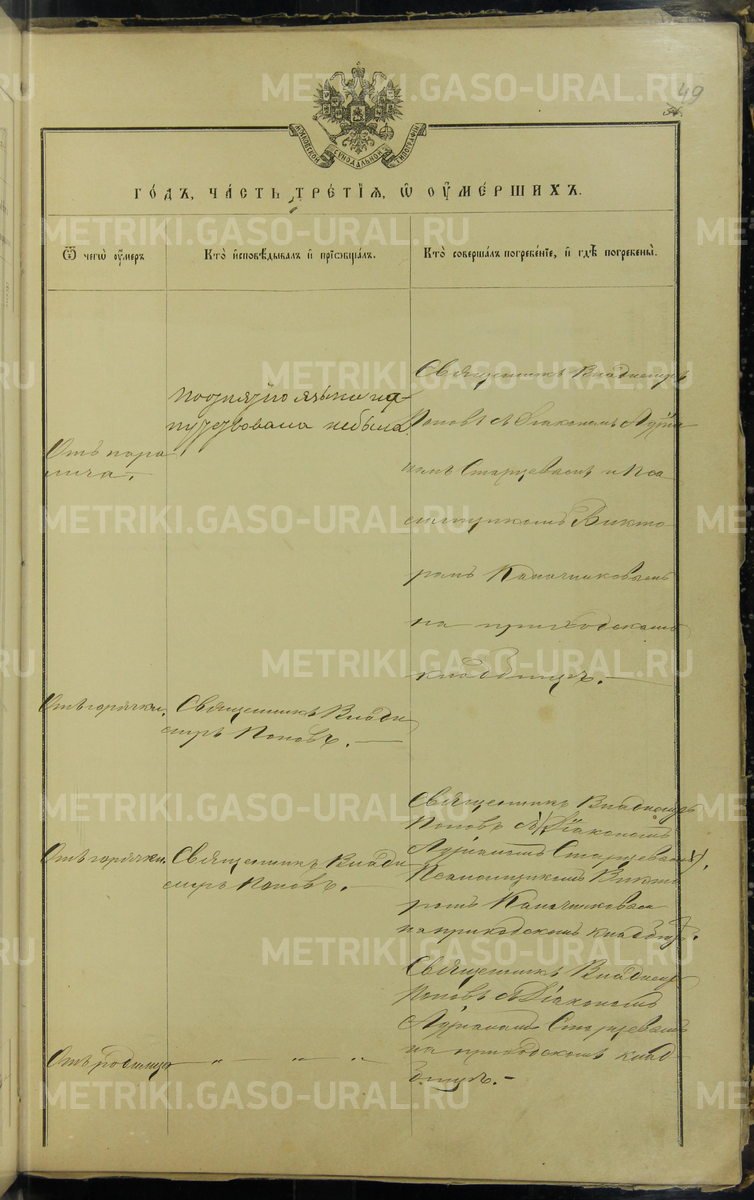 49
МОСКОВСКОЙ СѴНОДАЛЬНОЙ ТИПОГРАФІИ
ГО́ДЪ, ЧА́СТЬ ТРЕ́ТІЯ, Ѡ҆ ОУ҆МЕ́РШИХЪ.
Ѿ чегѡ̀ оу҆́меръ
Кто̀ и҆сповѣ́дывалъ и҆ прїѡбща́лъ.
Кто̀ соверша́лъ погребе́нїе, и҆ гдѣ̀ погребены̀.
Отъ пара
лича.
языка на
путствована небыла
Священникъ Владимиръ
Поповъ съ Діакономъ
Старцевымъ и Пса
ломщикомъ Викто
ромъ
на приходскомъ
кладбищѣ. —
Отъ горячки.
Священникъ Влади
миръ Поповъ. —
Отъ горячки.
Священникъ Влади
миръ Поповъ. —
Священникъ Владимиръ
Поповъ съ Діакономъ
Старцевымъ,
Псаломщикомъ Викто
ромъ
на приходскомъ кладбищѣ.
Отъ родимца
„ — „ — „
Священникъ Владимиръ
Поповъ съ Діакономъ
Старцевымъ
на приходскомъ клад
бищѣ. —
METRIKI.GASO-URAL.RU